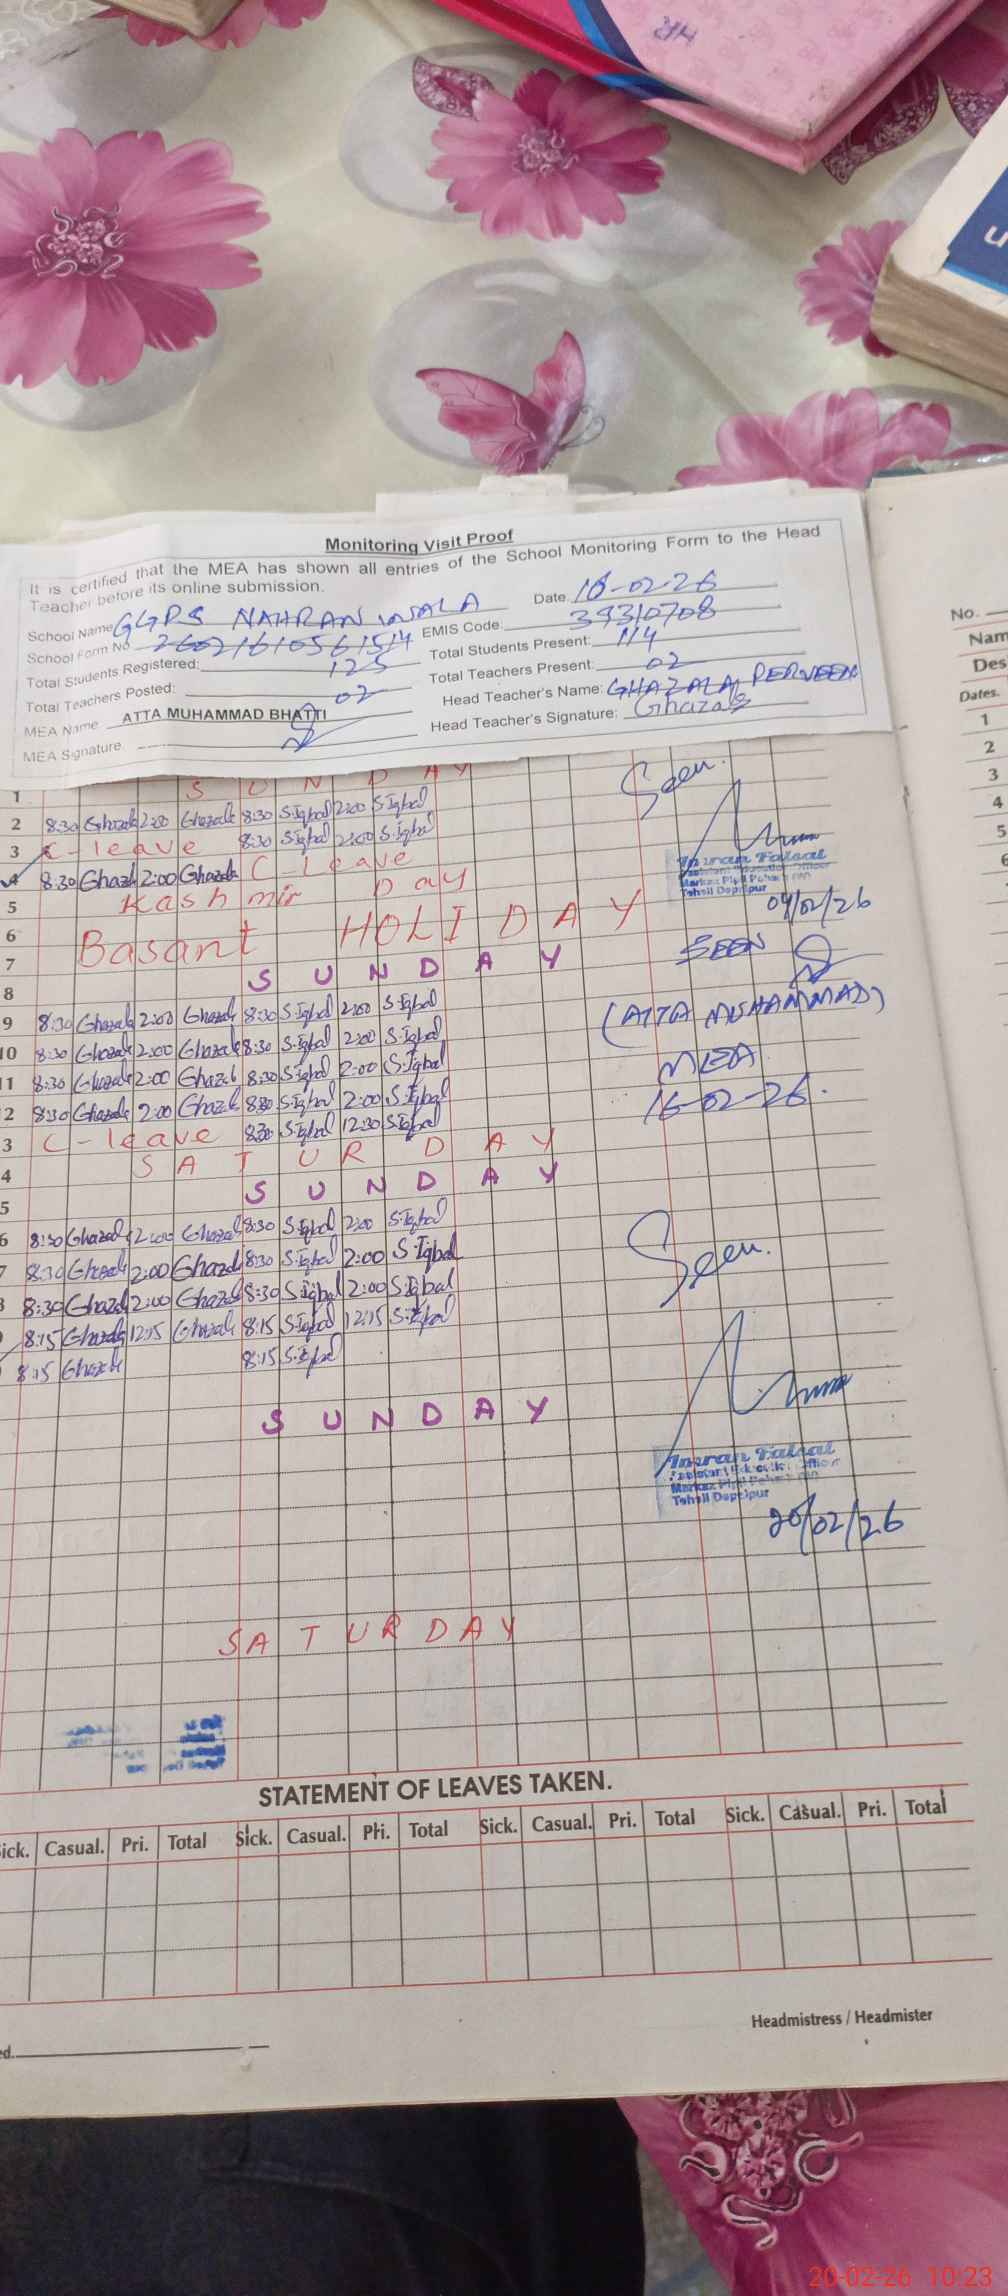 HR
Monitoring Visit Proof
It is certified that the MEA has shown all entries of the School Monitoring Form to the Head
Teacher before its online submission.
School Name GGPS NAHRAN WALA Date. 16-02-26
School Form No EMIS Code: 39310708
Total Students Registered: 125 Total Students Present: 114
Total Teachers Posted: 02 Total Teachers Present: 02
MEA Name ATTA MUHAMMAD BHATTI Head Teacher's Name: GHAZALA PERVEEN
MEA Signature. Head Teacher's Signature: Ghazala
1 S U N D A Y Seen.
2 8:30 Ghazala 2:00 Ghazala 8:30 S.Iqbal 2:00 S.Iqbal
3 C-leave 8:30 S.Iqbal 2:00 S.Iqbal
4 8:30 Ghazala 2:00 Ghazala C-Leave
Imran Faisal
Assistant Education Officer
Tehsil Depalpur
5 Kashmir Day
04/02/26
6 Basant HOLIDAY
7 SEEN
8 S U N D A Y
(ATTA MUHAMMAD)
9 8:30 Ghazala 2:00 Ghazala 8:30 S.Iqbal 2:00 S.Iqbal
10 8:30 Ghazala 2:00 Ghazala 8:30 S.Iqbal 2:00 S.Iqbal
MEA
11 8:30 Ghazala 2:00 Ghazala 8:30 S.Iqbal 2:00 S.Iqbal
16-02-26.
2 8:30 Ghazala 2:00 Ghazala 8:30 S.Iqbal 2:00 S.Iqbal
3 C-leave 8:30 S.Iqbal 12:30 S.Iqbal
4 S A T U R D A Y
5 S U N D A Y
6 8:30 Ghazala 2:00 Ghazala 8:30 S.Iqbal 2:00 S.Iqbal
7 8:30 Ghazala 2:00 Ghazala 8:30 S.Iqbal 2:00 S.Iqbal
Seen.
8:30 Ghazala 2:00 Ghazala 8:30 S.Iqbal 2:00 S.Iqbal
8:15 Ghazala 12:15 Ghazala 8:15 S.Iqbal 12:15 S.Iqbal
8:15 Ghazala 8:15 S.Iqbal
S U N D A Y
Imran Faisal
Assistant Education Officer
Tehsil Depalpur
20/02/26
S A T U R D A Y
STATEMENT OF LEAVES TAKEN.
ick. Casual. Pri. Total Sick. Casual. Pri. Total Sick. Casual. Pri. Total Sick. Casual. Pri. Total
Headmistress / Headmister
ed.
No.
Nam
Des
Dates.
1
2
3
4
5
6
20-02-26 10:23